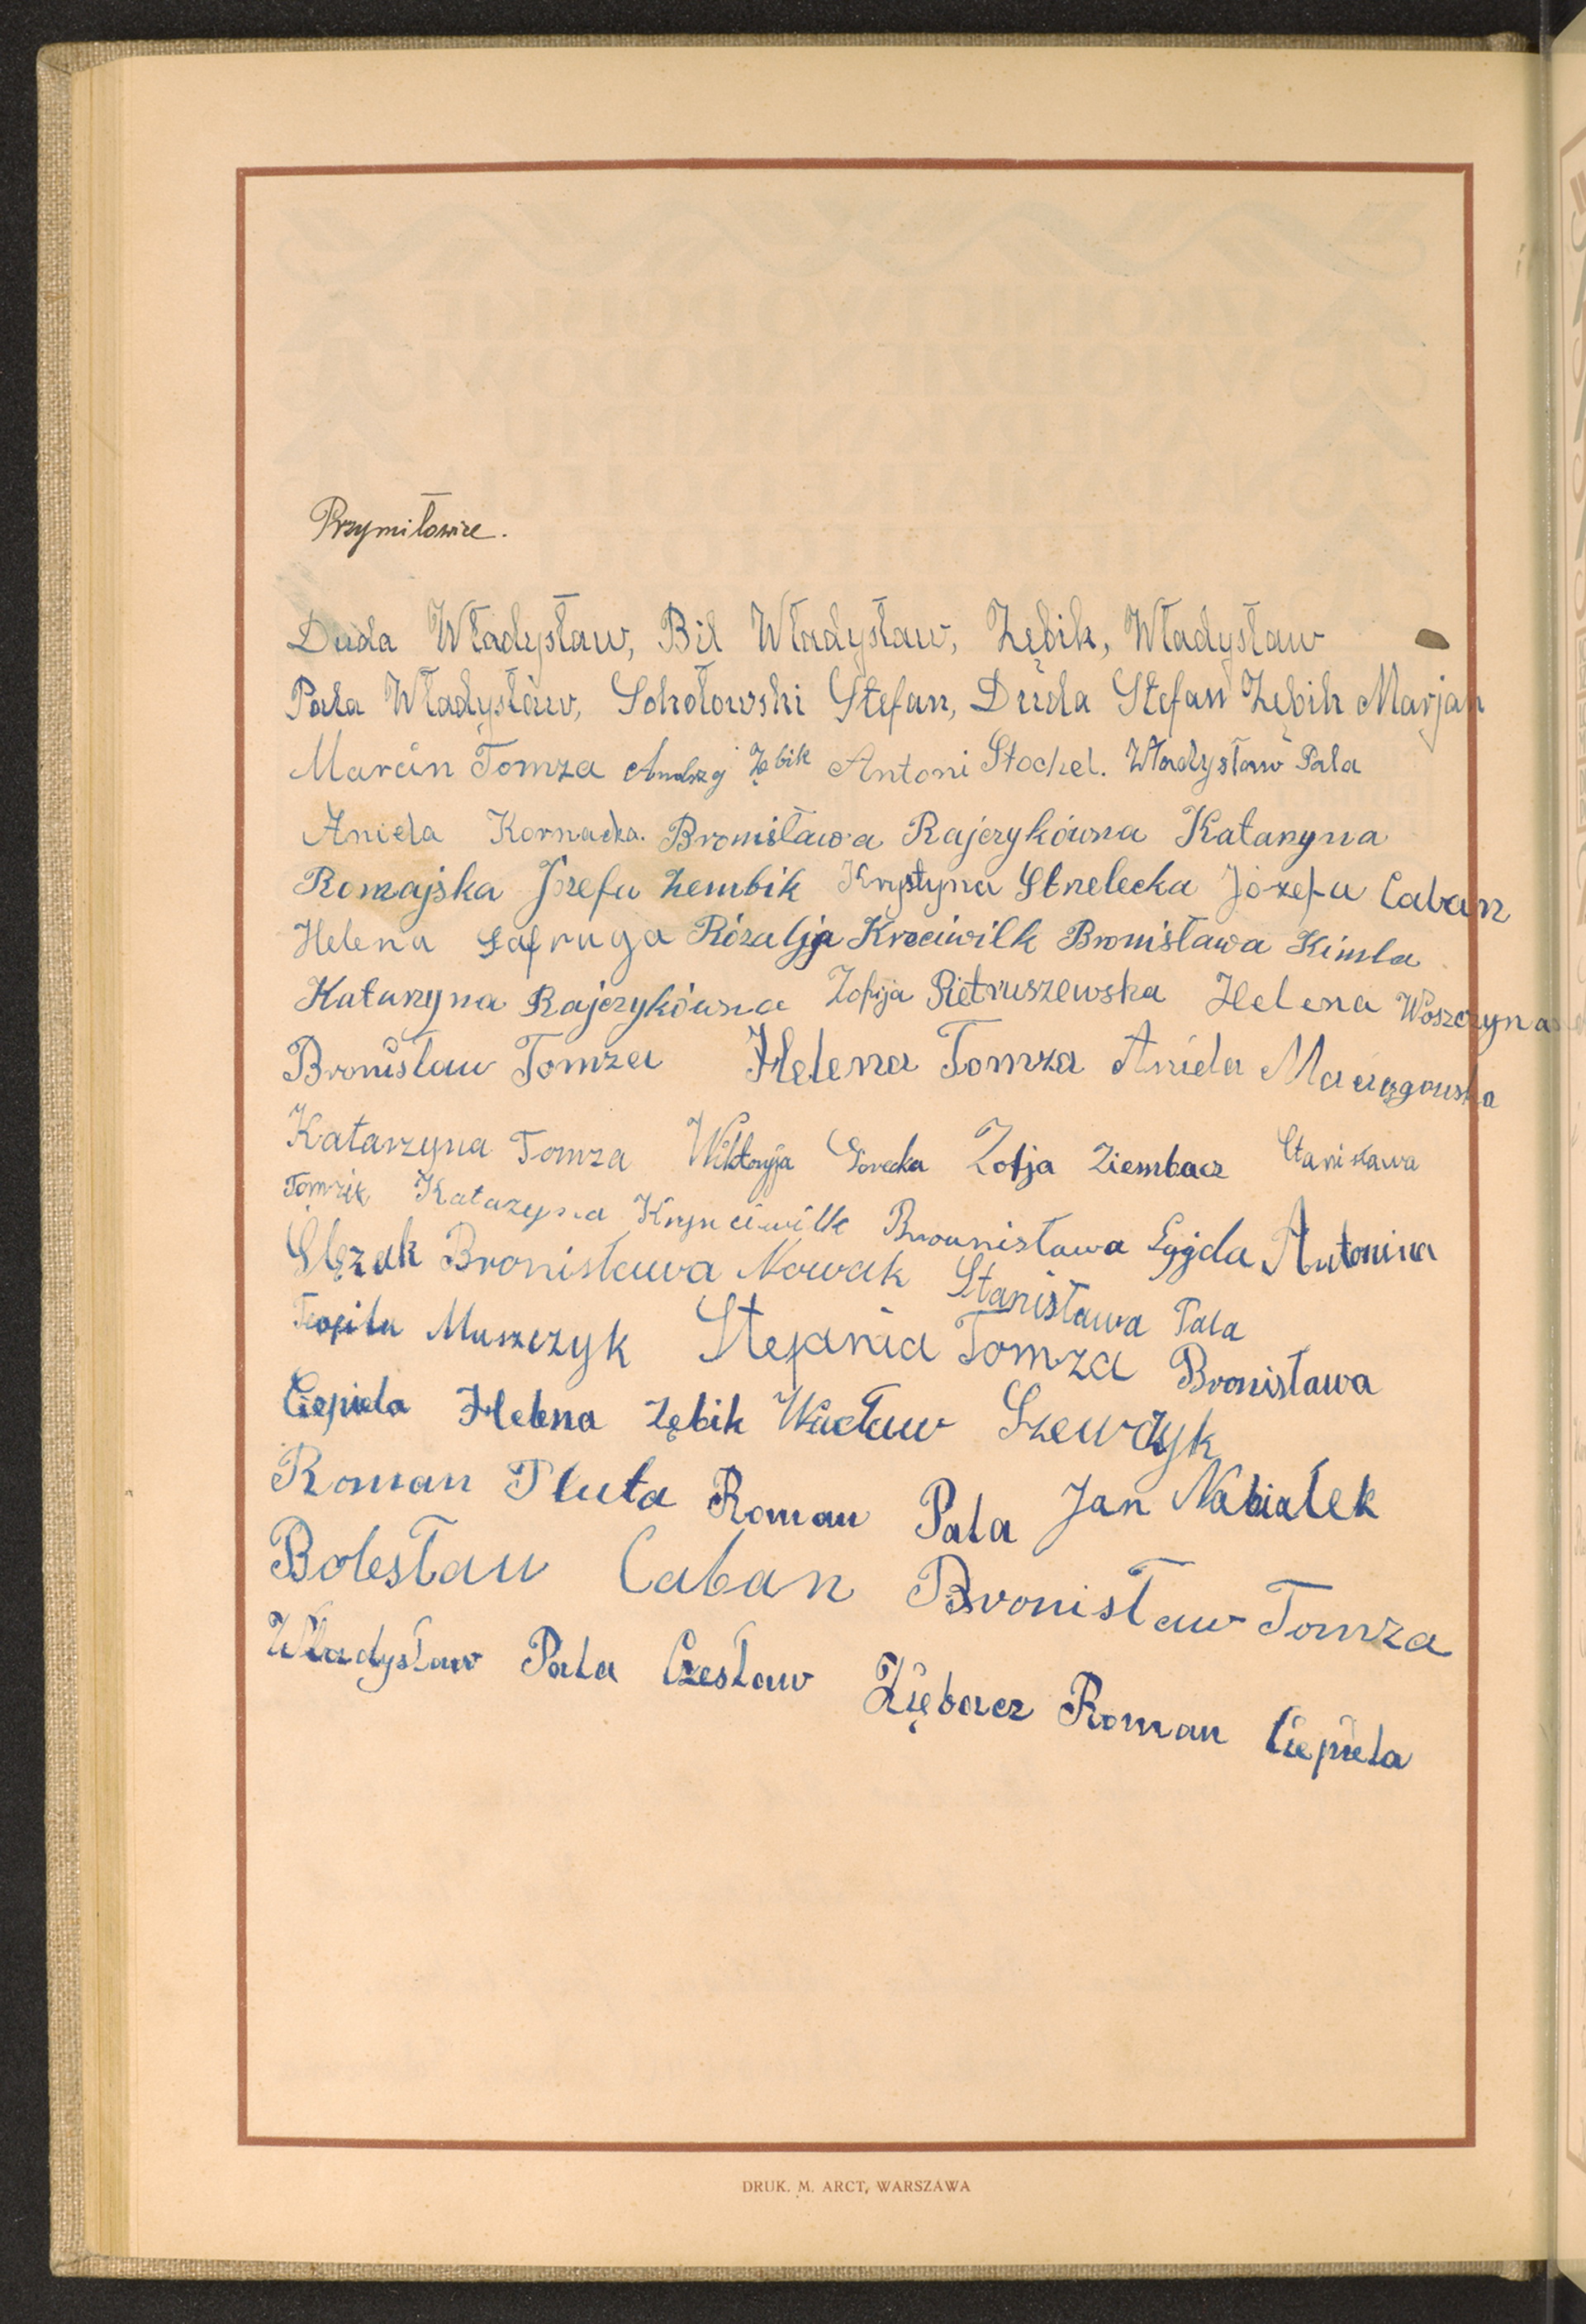 Przymiłowice.
Duda Władysław, Bil Władysław, Zębik, Władysław
Pala Władysław, Sokołowski Stefan, Duda Stefan Zębik Marjan
Marcin Tomza Andrzej Zębik Antoni Stochel. Władysław Pala
Aniela Kornacka. Bronisława Rajczykówna Katarzyna
Romajska Józefa Zembik Krystyna Strzelecka Józefa Caban
Helena Łafruga Rózalja Krzciwilk Bronisława Kimla
Katarzyna Rajczykówna Zofija Pietruszewska Helena Woszczyna
Bronisław Tomza Helena Tomza Aniela
Katarzyna Tomza Wiktoryja Gorecka Zofja Ziembacz Stanisława
Tomzik Katazyna Brounisława Antonina
Ślęzak Bronisława Nowak Stanisława Pala
Teofila Muszczyk Stefania Tomza Bronisława
Ciepiela Helena Zębik Wacław Szewczyk
Roman Pluta Roman Pala Jan Nabiałek
Bolesław Caban Bronisław Tomza
Władysław Pala Czesław Ziębacz Roman Ciepiela
DRUK. M. ARCT, WARSZAWA